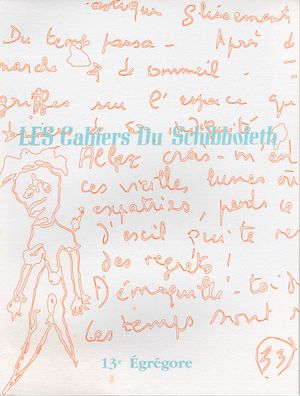 astique Glissement
Du temps passa - Après d
marche de sommeil -
griffes sur l'espace que
LES Cahiers Du Schibboleth
Allez cras - m'en
ces vieilles lunes
expatriés, perds ce
d'exil
des regrets !
Démaquille - toi d
Les temps sont
13e Égrégore
33